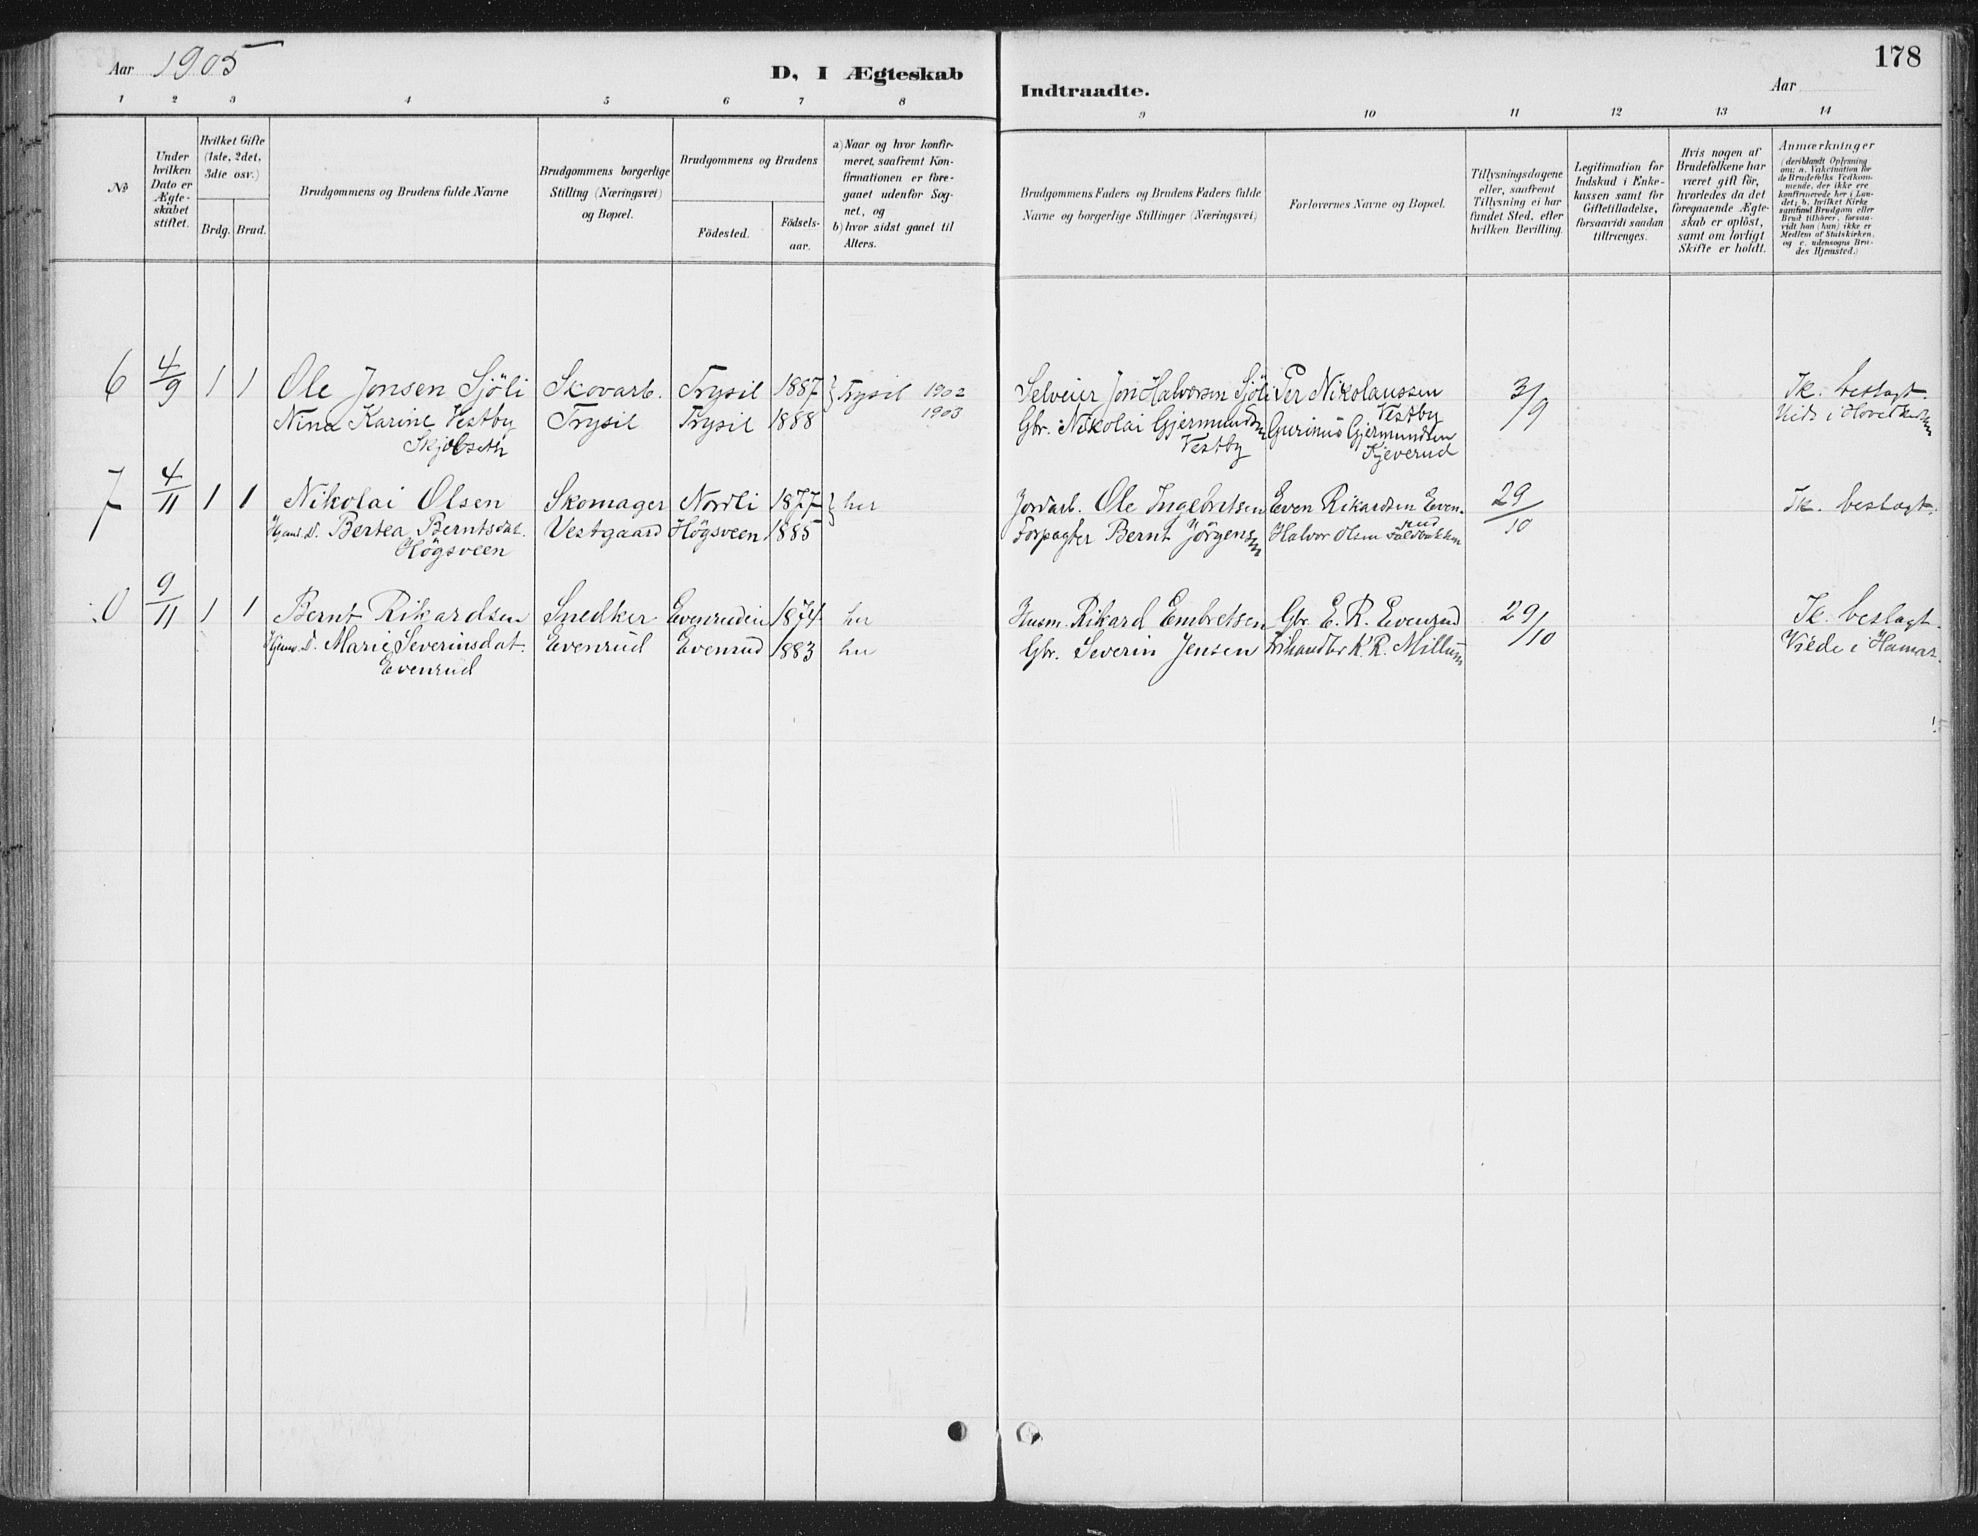 Aar 1905
D, I Ægteskab
Indtraadte.
Aar
178
1 2 3 4 5 6 7 8 9 10 11 12 13 14
No
Under hvilken Dato er Ægteskabet stiftet.
Hvilket Gifte (1ste, 2det, 3die osv.)
Brdg. Brud.
Brudgommens og Brudens fulde Navne
Brudgommens borgerlige Stilling (Næringsvei) og Bopæl.
Brudgommens og Brudens
Födested.
Födsels-aar.
a) Naar og hvor konfirmeret, saafremt Konfirmationen er foregaaet udenfor Sognet, og
b) hvor sidst gaaet til Alters.
Brudgommens Faders og Brudens Faders fulde Navne og borgerlige Stillinger (Næringsvei)
Forlovernes Navne og Bopæl.
Tillysningsdagene eller, saafremt Tillysning ei har fundet Sted, efter hvilken Bevilling.
Legitimation for Indskud i Enkekassen samt for Giftetilladelse, forsaavidt saadan tiltrænges.
Hvis nogen af Brudefolkene har været gift för, hvorledes da det foregaaende Ægteskab er oplöst, samt om lovligt Skifte er holdt.
Anmærkninger
(deriblandt Oplysning om: a. Vakcination for de Brudefolks Vedkommende, der ikke ere konfirmerede her i Landet; b. hvilket Kirkesamfund Brudgom eller Brud tilhörer, forsaavidt han (hun) ikke er Medlem af Statskirken, og c. udensogns Brudes Hjemsted.)
6 4/9 1 1 Ole Jonsen Sjöli Skovarb. Trysil 1887 Trysil 1902 Selveier Jon Halvorsen Sjöli Per Nikolaussen 3/9 Ik. beslagt.
Nina Karine Vestby Trysil Trysil 1888 1903 Gbr. Nikolai Gjermundsen Vestby
Vestby Gurinus Gjermundsen
Kjeverud
7 4/11 1 1 Nikolai Olsen Skomager Nordli 1877 her Jordarb. Ole Ingebretsen Even Rikardsen Evenrud 29/10 Ik. beslagt.
Hjemv. D. Bertea Berntsdat. Vestgaard Högsveen 1885 Forpagter Bernt Jörgensen Halvor Olsen
Högsveen
9/11 1 1 Bernt Rikardsen Snedker Evenruden 1874 her Husm. Rikard Embretsen Gbr. E. R. Evenrud 29/10 Ik. beslagt.
Hjemv. D. Marie Severinsdat. Evenrud Evenrud 1883 her Gbr. Severin Jensen K. R. Millum Viede i Hamar.
Evenrud